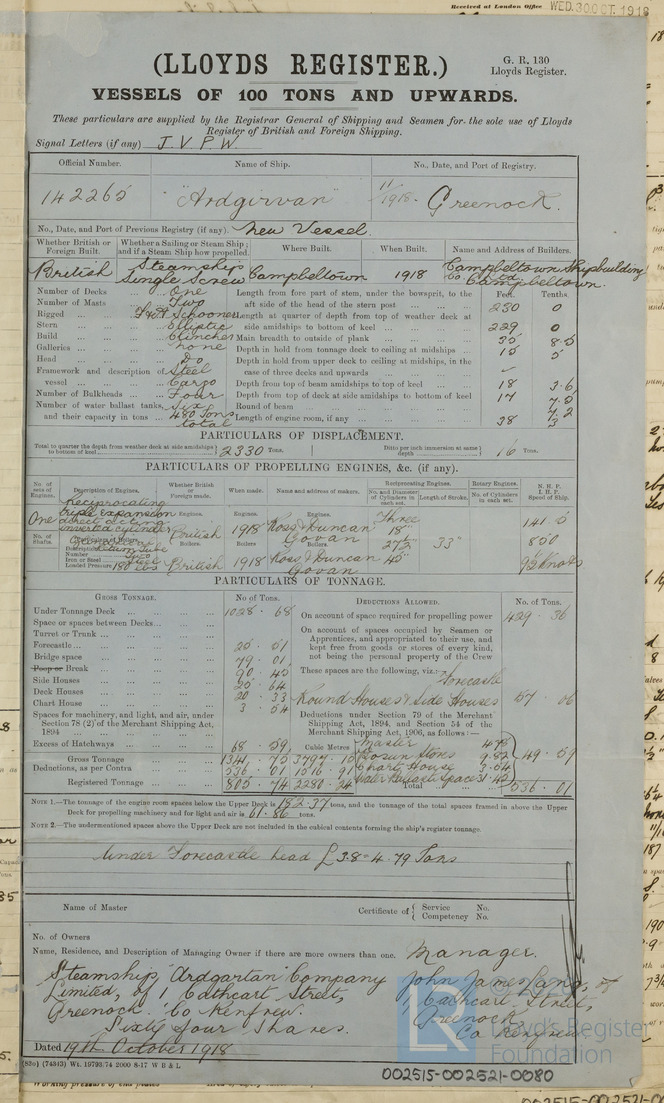 Received at London Office WED. 30 OCT. 1918
(LLOYDS REGISTER.)
G. R. 130
Lloyds Register.
VESSELS OF 100 TONS AND UPWARDS.
These particulars are supplied by the Registrar General of Shipping and Seamen for the sole use of Lloyds
Register of British and Foreign Shipping.
Signal Letters (if any) J. V. P. W.
Official Number. Name of Ship. No., Date, and Port of Registry.
142265 "Ardgirvan" 11/1918. Greenock.
No., Date, and Port of Previous Registry (if any). New Vessel.
Whether British or Foreign Built. Whether a Sailing or Steam Ship; and if a Steam Ship how propelled. Where Built. When Built. Name and Address of Builders.
British Steamship Single Screw Campbeltown 1918 Campbeltown Shipbuilding Co Ltd Campbeltown.
Number of Decks One
Number of Masts Two
Rigged F & A Schooner
Stern Elliptic
Build Clincher
Galleries none
Head Do
Framework and description of vessel Steel Cargo
Number of Bulkheads Four
Number of water ballast tanks, and their capacity in tons Six 480 Tons total
Feet. Tenths.
Length from fore part of stem, under the bowsprit, to the aft side of the head of the stern post 230 0
Length at quarter of depth from top of weather deck at side amidships to bottom of keel 229 0
Main breadth to outside of plank 35 8.5
Depth in hold from tonnage deck to ceiling at midships 15 5
Depth in hold from upper deck to ceiling at midships, in the case of three decks and upwards
Depth from top of beam amidships to top of keel 18 3.6
Depth from top of deck at side amidships to bottom of keel 17 7.5
Round of beam 7.2
Length of engine room, if any 38 3
PARTICULARS OF DISPLACEMENT.
Total to quarter the depth from weather deck at side amidships to bottom of keel 2330 Tons. Ditto per inch immersion at same depth 16 Tons.
PARTICULARS OF PROPELLING ENGINES, &c. (if any).
No. of sets of Engines. Description of Engines. Whether British or Foreign made. When made. Name and address of makers. Reciprocating Engines. No. and Diameter of Cylinders in each set. Length of Stroke. Rotary Engines. No. of Cylinders in each set. N. H. P. I. H. P. Speed of Ship.
One Reciprocating triple expansion direct acting inverted cylinder
Engines. British 1918 Ross & Duncan Govan Three 18" 27½" 45" 33" 141.5 850 9½ Knots
No. of Shafts. Description Number Two Iron or Steel Steel Loaded Pressure 180 lbs
Boilers. British 1918 Ross & Duncan Govan
PARTICULARS OF TONNAGE.
GROSS TONNAGE. No. of Tons. DEDUCTIONS ALLOWED. No. of Tons.
Under Tonnage Deck 1028.68
Space or spaces between Decks
Turret or Trunk
Forecastle 20.01
Bridge space 79.01
Poop or Break 90.45
Side Houses 20.64
Deck Houses 20.33
Chart House 3.04
Spaces for machinery, and light, and air, under Section 78 (2) of the Merchant Shipping Act, 1894
Excess of Hatchways 68.59
Gross Tonnage 1341.75
Deductions, as per Contra 536.01
Registered Tonnage 805.74
Cubic Metres 3797.15 1516.91 2280.24
On account of space required for propelling power 429.36
On account of spaces occupied by Seamen or Apprentices, and appropriated to their use, and kept free from goods or stores of every kind, not being the personal property of the Crew
These spaces are the following, viz.:— Forecastle
Round House & Side Houses 57.06
Deductions under Section 79 of the Merchant Shipping Act, 1894, and Section 54 of the Merchant Shipping Act, 1906, as follows:—
Master
Bosun Stores
Chart House
Water Ballast Space 31.42
49.59
Total 536.01
NOTE 1.—The tonnage of the engine room spaces below the Upper Deck is 182.37 tons, and the tonnage of the total spaces framed in above the Upper
Deck for propelling machinery and for light and air is 61.86 tons.
NOTE 2.—The undermentioned spaces above the Upper Deck are not included in the cubical contents forming the ship's register tonnage.
Under Forecastle head
Name of Master
Certificate of { Service No. Competency No.
No. of Owners
Name, Residence, and Description of Managing Owner if there are more owners than one. Manager.
Steamship "Ardgartan" Company
Limited, of 1 Cathcart Street,
Greenock. Co Renfrew.
Sixty four Shares.
John James Lang, of
1 Cathcart Street,
Greenock
Co Renfrew
Dated 19th October 1918
(83o) (74343) Wt. 19793/74 2000 8-17 W B & L
LR Lloyd's Register
Foundation
002515-002521-0080